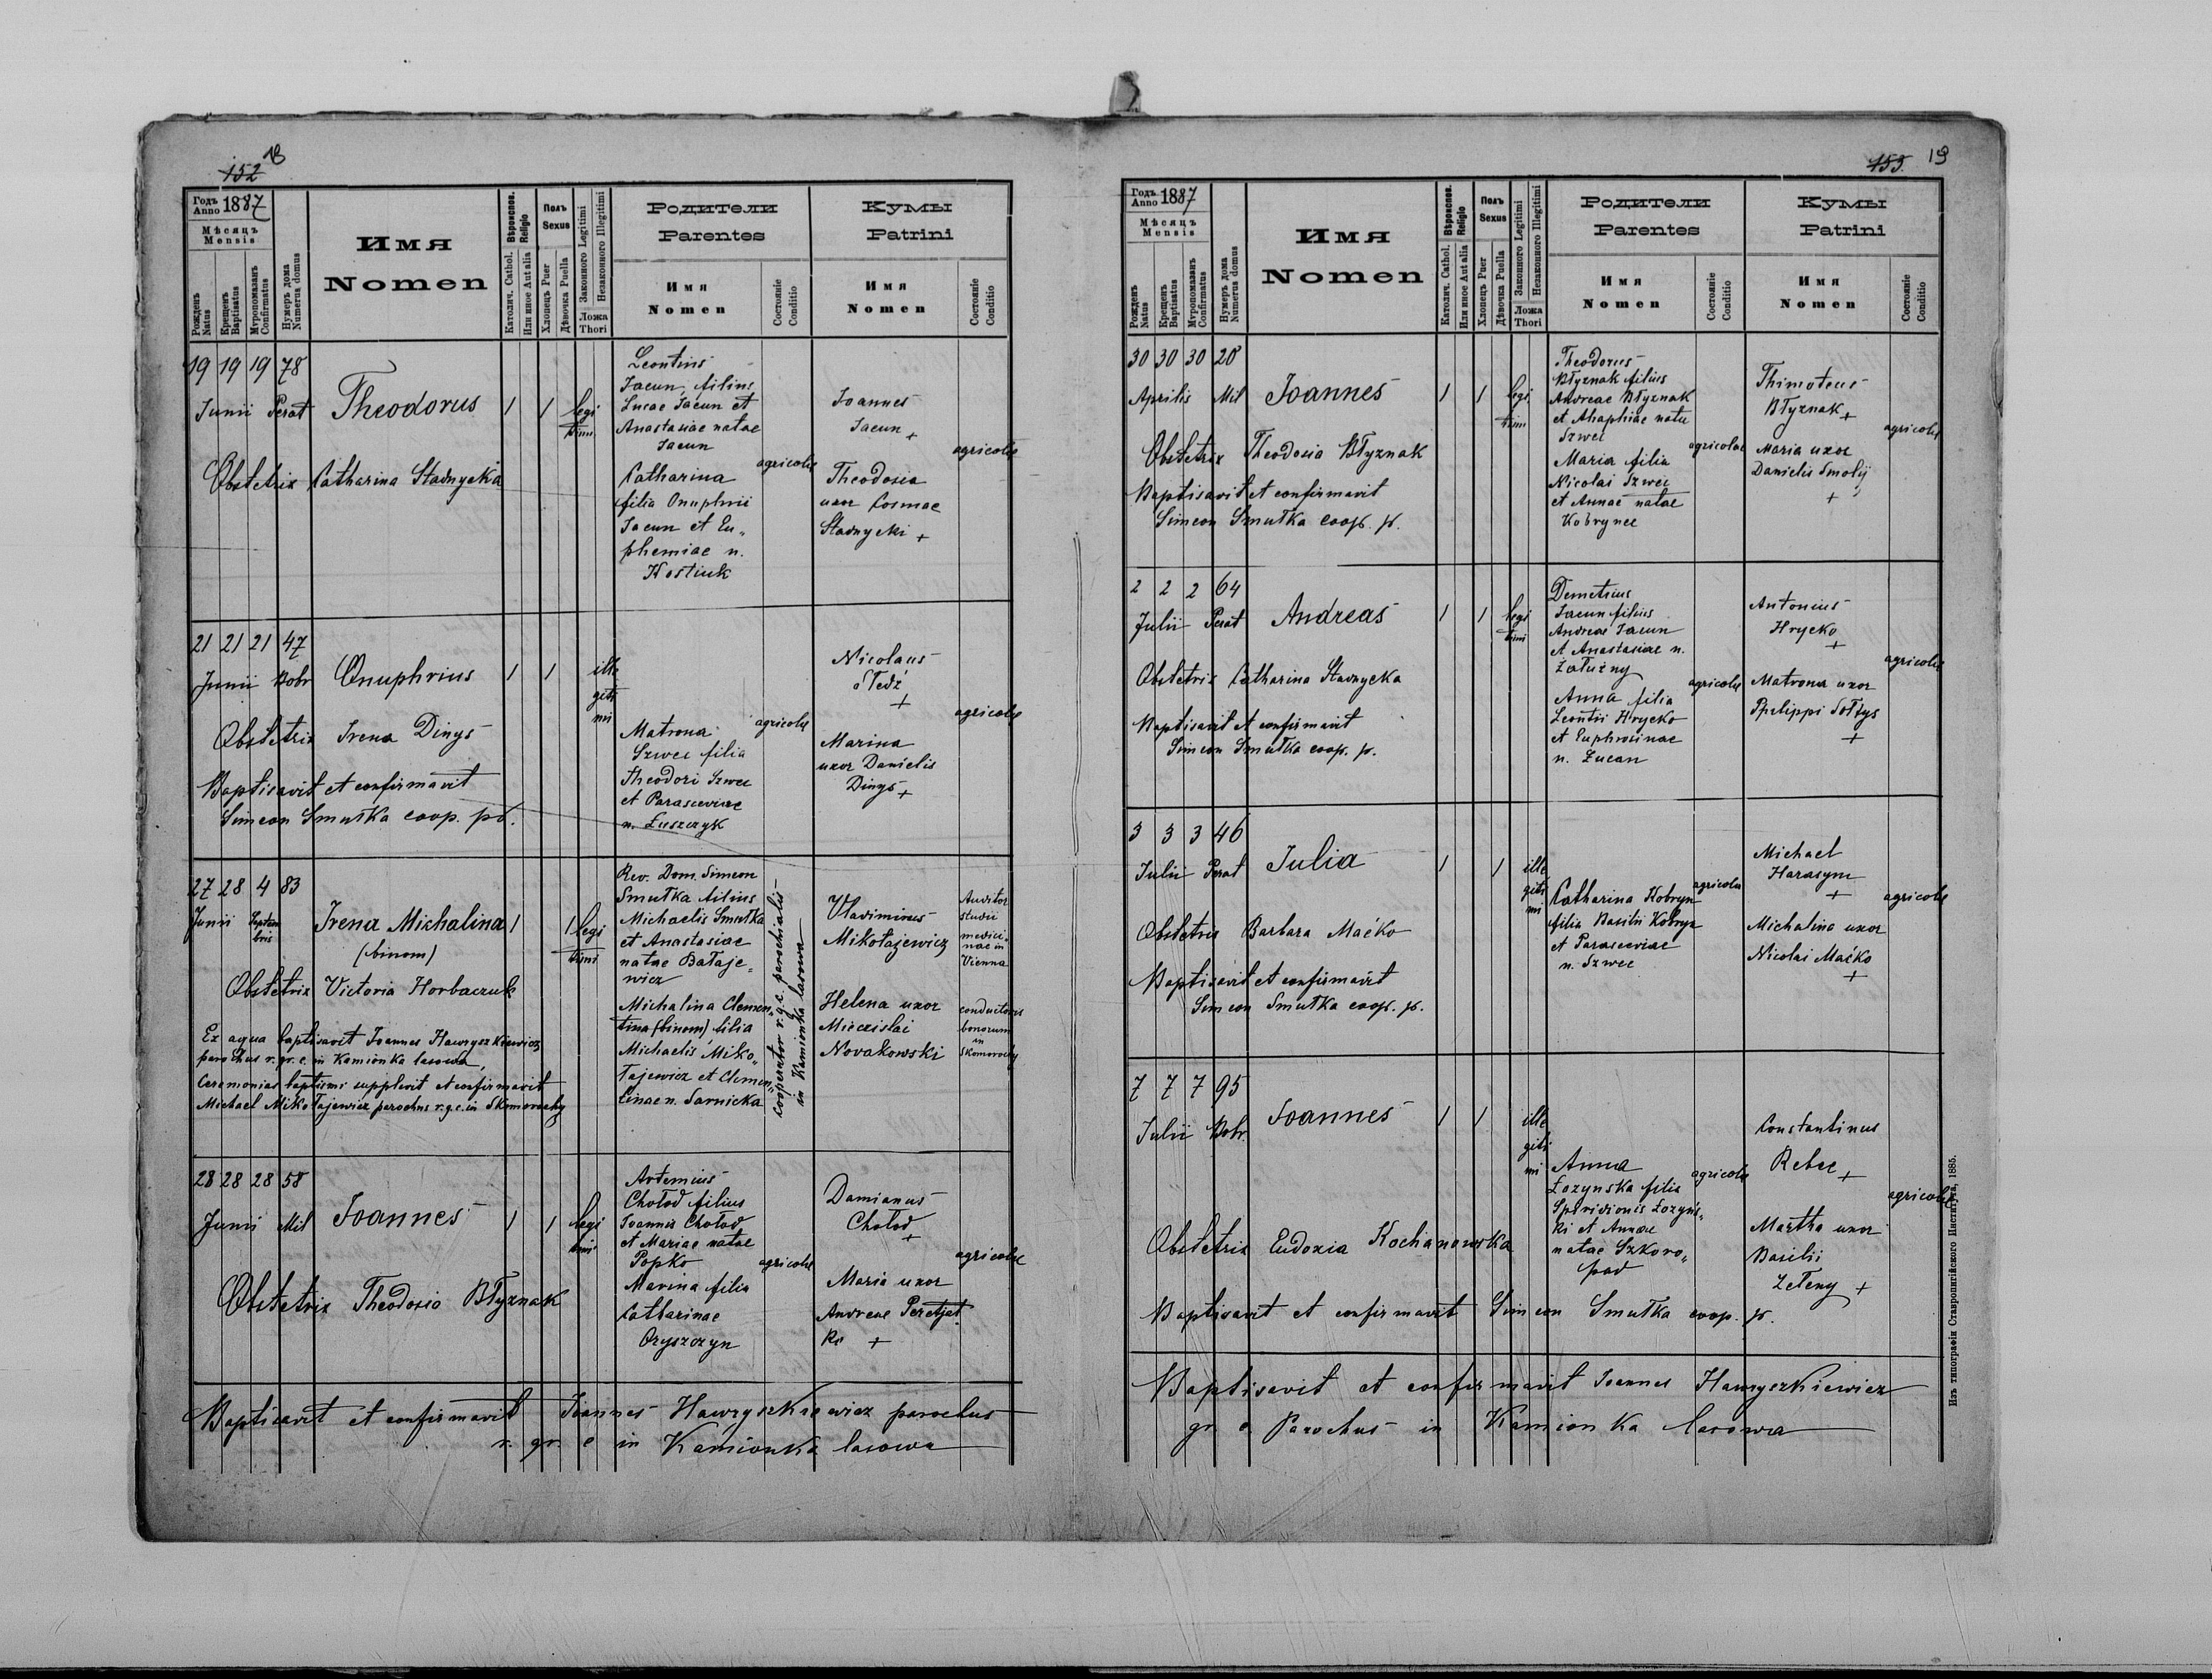 152 18
Годъ Anno 1887
Мѣсяцъ Mensis
Рожденъ Natus
Крещенъ Baptisatus
Мѵропомазанъ Confirmatus
Нумеръ дома Numerus domus
Имя
Nomen
Вѣроиспов. Religio
Католич. Cathol.
Или иное Aut alia
Полъ Sexus
Хлопецъ Puer
Дѣвочка Puella
Законного Legitimi
Незаконного Illegitimi
Ложа Thori
Родители
Parentes
Имя
Nomen
Состояніе Conditio
Кумы
Patrini
Имя
Nomen
Состояніе Conditio
19 19 19 78
Junii Perat
Theodorus
1 1 legi
timi
Leontius
Jacun, filius
Lucae Jacun et
Anastasiae natae
Jacun
Catharina
filia Onuphrii
Jacun et Eu„
phemiae n.
Kostiuk
agricolae
Joannes
Jacun +
Theodosia
uxor Cosmae
Stadnycki +
agricolae
Obstetrix Catharina Stadnycka
21 21 21 47
Junii Bobr
Onuphrius
1 1 ille
giti
mi
Matrona
Szwec filia
Theodori Szwec
et Parasceviae
n. Łuszczyk
agricolae
Nicolaus
Śledź
+
Marina
uxor Danielis
Dinys +
agricolae
Obstetrix Irena Dinys
Baptisavit et confirmavit
Simeon Smutka coop. p.
27 28 4 83
Junii Septem
bris
Irena Michalina
(binom)
1 1 legi
timi
Rev. Dom. Simeon
Smutka filius
Michaelis Smutka
et Anastasiae
natae Bałaje„
wicz
Michalina Clemen„
tina (binom) filia
Michaelis Miko„
łajewicz et Clemen„
tinae n. Sarnicka
cooperator r.g.c. parochialis
in Kamionka lasowa
Vladimirus
Mikołajewicz
Auditor
studii
medici„
nae in
Vienna
Helena uxor
Miecislai
Novakowski
conductoris
bonorum
in
Skomorochy
Obstetrix Victoria Horbaczuk
Ex aqua baptisavit Joannes Hawryszkiewicz
parochus r. gr. c. in Kamionka lasowa,
Ceremonias baptismi supplevit et confirmavit
Michael Mikołajewicz parochus r.g.c. in Skomorochy
28 28 28 58
Junii Mil
Joannes
1 1 legi
timi
Artemius
Chołod filius
Joannis Chołod
et Mariae natae
Popko
Marina filia
Catharinae
Oryszczyn
agricolae
Damianus
Chołod
+
Maria uxor
Andreae Peretjat„
ko +
agricolae
Obstetrix Theodosia Błyznak
Baptisavit et confirmavit Joannes Hawryszkiewicz parochus
r. gr. c in Kamionka lasowa
153. 19
Годъ Anno 1887
Мѣсяцъ Mensis
Рожденъ Natus
Крещенъ Baptisatus
Мѵропомазанъ Confirmatus
Нумеръ дома Numerus domus
Имя
Nomen
Вѣроиспов. Religio
Католич. Cathol.
Или иное Aut alia
Полъ Sexus
Хлопецъ Puer
Дѣвочка Puella
Законного Legitimi
Незаконного Illegitimi
Ложа Thori
Родители
Parentes
Имя
Nomen
Состояніе Conditio
Кумы
Patrini
Имя
Nomen
Состояніе Conditio
30 30 30 20
Aprilis Mil
Joannes
1 1 legi
timi
Theodorus
Błyznak filius
Andreae Błyznak
et Ahaphiae natae
Szwec
Maria filia
Nicolai Szwec
et Annae natae
Kobrynec
agricolae
Thimoteus
Błyznak +
Maria uxor
Danielis Smolij
+
agricolae
Obstetrix Theodosia Błyznak
Baptisavit et confirmavit
Simeon Smutka coop. p.
2 2 2 64
Julii Perat
Andreas
1 1 legi
timi
Demetrius
Jacun filius
Andreae Jacun
et Anastasiae n.
Załużny
Anna filia
Leontii Hrycko
et Euphrosinae
n. Łucan
agricolae
Antonius
Hrycko
+
Matrona uxor
Philippi Sołtys
+
agricolae
Obstetrix Catharina Stadnycka
Baptisavit et confirmavit
Simeon Smutka coop. p.
3 3 3 46
Julii Perat
Julia
1 1 ille
giti
mi
Catharina Kobryn
filia Basilii Kobryn
et Parasceviae
n. Szwec
agricolae
Michael
Harasym
+
Michalina uxor
Nicolai Maćko
+
agricolae
Obstetrix Barbara Maćko
Baptisavit et confirmavit
Simeon Smutka coop. p.
7 7 7 95
Julii Bobr.
Joannes
1 1 ille
giti
mi
Anna
Łozynska filia
Spiridionis Łozyńs„
ki et Annae
natae Szkoro„
pad
agricolae
Constantinus
Rebec +
Martha uxor
Basilii
Zełeny +
agricolae
Obstetrix Eudoxia Kochanowska
Baptisavit et confirmavit Simeon Smutka coop. p.
Baptisavit et confirmavit Joannes Hawryszkiewicz
gr. c. Parochus in Kamionka lasowa
Изъ типографіи Ставропигійского Института, 1885.